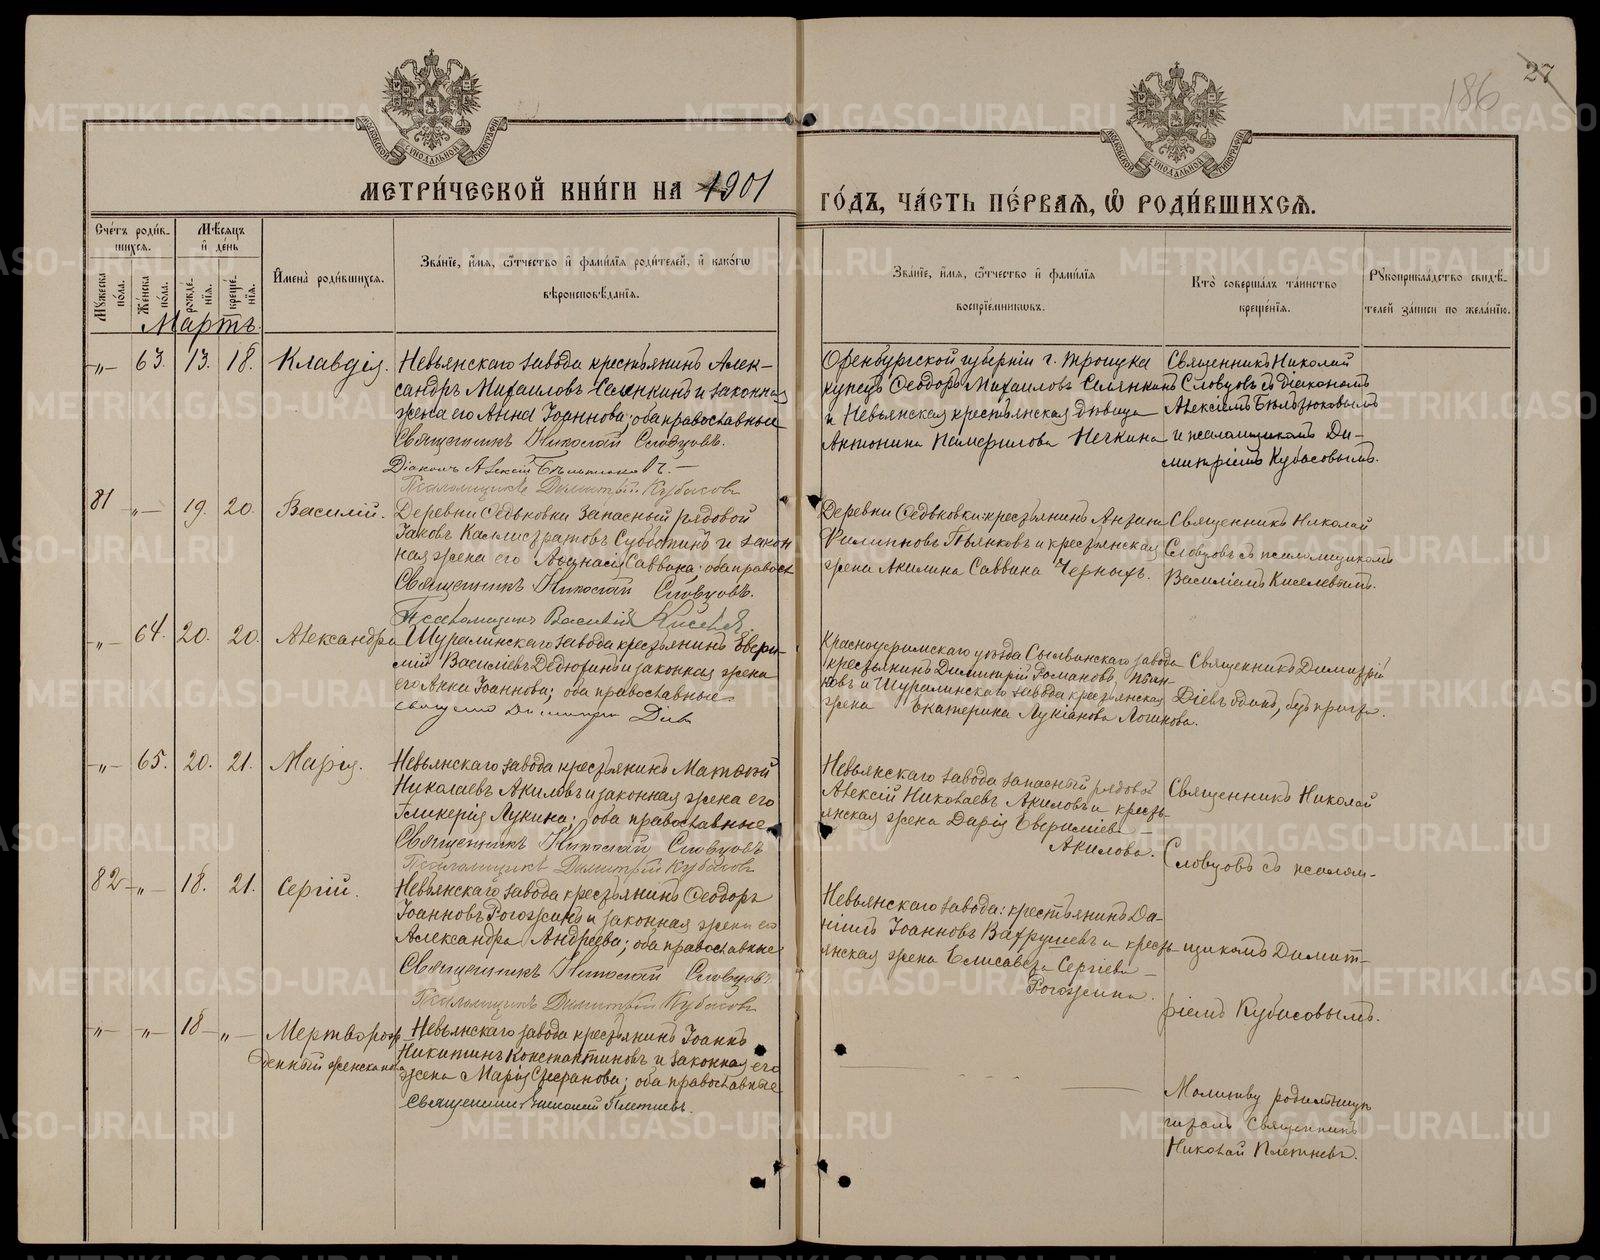 186
27
МЕТРИ́ЧЕСКОЙ КНИ́ГИ НА 1901 ГО́ДЪ, ЧА́СТЬ ПЕ́РВАЯ, Ѡ҆ РОДИ́ВШИХСѦ.
Сче́тъ роди́в-
шихсѧ.
Мѣ́сѧцъ
и҆ де́нь
Мꙋ́жеска
по́ла.
Же́нска
по́ла.
рожде́-
нїѧ.
креще́-
нїѧ.
И҆мена̀ роди́вшихсѧ.
Зва́нїе, и҆́мѧ, ѻ҆́тчество и҆ фами́лїѧ роди́телей, и҆ како́гѡ
вѣроисповѣ́данїѧ.
Зва́нїе, и҆́мѧ, ѻ҆́тчество и҆ фами́лїѧ
воспрїе́мникѡвъ.
Кто̀ соверша́лъ та́инство
креще́нїѧ.
Рꙋкоприкла́дство свидѣ́-
телей за́писи по жела́нїю.
Мартъ
-„- 63. 13. 18. Клавдія.
Невьянскаго завода крестьянинъ Алек-
сандръ Михаиловъ и законная
жена его Анна Іоаннова; оба православные
Священникъ Николай Словцовъ.
Діаконъ Алексій
Псаломщикъ Димитрій Кубасовъ
Оренбургской губерніи г. Троицка
купецъ Ѳеодоръ Михаиловъ
и Невьянская крестьянская дѣвица
Антонина Памфилова Нечкина
Священникъ Николай
Словцовъ съ діакономъ
Алексіемъ
и псаломщикомъ Ди-
митріемъ Кубасовымъ.
81 -„- 19. 20. Василій.
Деревни Ѳедьковки запасный рядовой
Іаковъ Каллистратовъ Субботинъ и закон
ная жена его Саввина; оба правосл
Священникъ Николай Словцовъ.
Псаломщикъ Василій Киселев
Деревни Ѳедьковки: крестьянинъ
Филипповъ Пьянковъ и крестьянская
жена Акилина Саввина Черныхъ.
Священникъ Николай
Словцовъ съ псаломщикомъ
Василіемъ Киселевымъ.
-„- 64. 20. 20. Александра
Шуралинскаго завода крестьянинъ Еври-
мій Василіевъ Дедюхинъ и законная жена
его Анна Іоаннова; оба православные
Димитрій Діев
Красноуфимскаго уѣзда Сылвинскаго завода
крестьянинъ Димитрій Романовъ Пьян-
ковъ и Шуралинскаго завода крестьянская
жена Екатерина Лукіанова Логинова.
Священникъ Димитрій
Діевъ одинъ, безъ причта.
-„- 65. 20. 21. Марія.
Невьянскаго завода крестьянинъ Матѳій
Николаевъ Акиловъ и законная жена его
Гликерія Лукина; оба православные
Священникъ Николай Словцовъ
Псаломщикъ Димитрій Кубасовъ
Невьянскаго завода запасный рядовой
Алексій Николаевъ Акиловъ и кресть-
янская жена Дарія Евриміева
Акилова.
Священникъ Николай
Словцовъ съ псалом-
82 -„- 18. 21. Сергій.
Невьянскаго завода крестьянинъ Ѳеодоръ
Іоанновъ Рогожинъ и законная жена его
Александра Андреева; оба православные
Священникъ Николай Словцовъ.
Псаломщикъ Димитрій Кубасовъ
Невьянскаго завода: крестьянинъ Да-
ніилъ Іоанновъ Вахрушевъ и кресть-
янская жена Елисавета Сергіева
Рогожина.
щикомъ Димит-
ріемъ Кубасовымъ.
-„- -„- 18 -„- Мертворож
денный женска пола
Невьянскаго завода крестьянинъ Іоаннъ
Никитинъ Константиновъ и законная его
жена Марія Стефанова; оба православные
Священникъ Николай Плетневъ.
Молитву родильницѣ
читалъ Священникъ
Николай Плетневъ.
METRIKI.GASO-URAL.RU